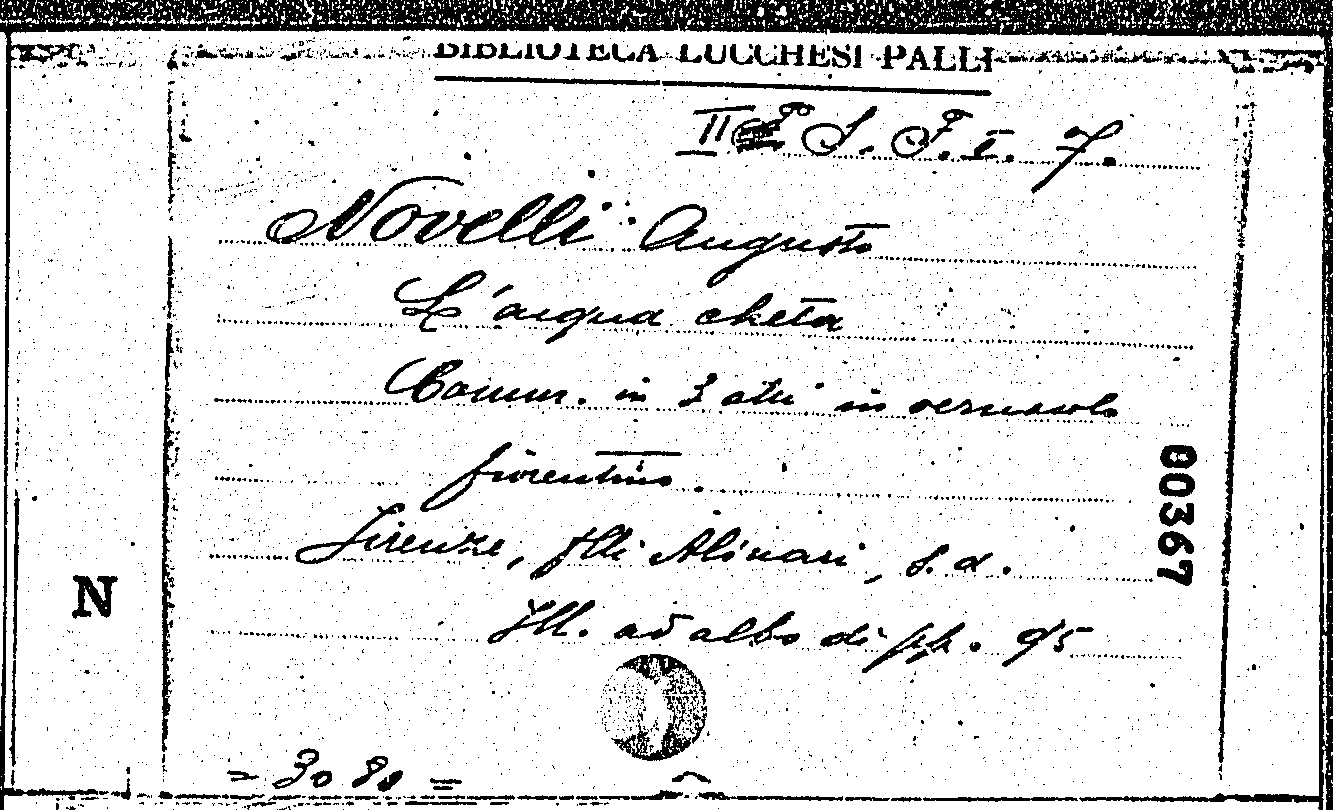 BIBLIOTECA LUCCHESI PALLI
II S. F. I. 7.
Novelli Augusto
L'acqua cheta
Comm. in 3 atti in vernacolo
fiorentino.
Firenze, flli Alinari, s.d.
Ill. ad albo di pp. 95
00367
N
= 3090 =